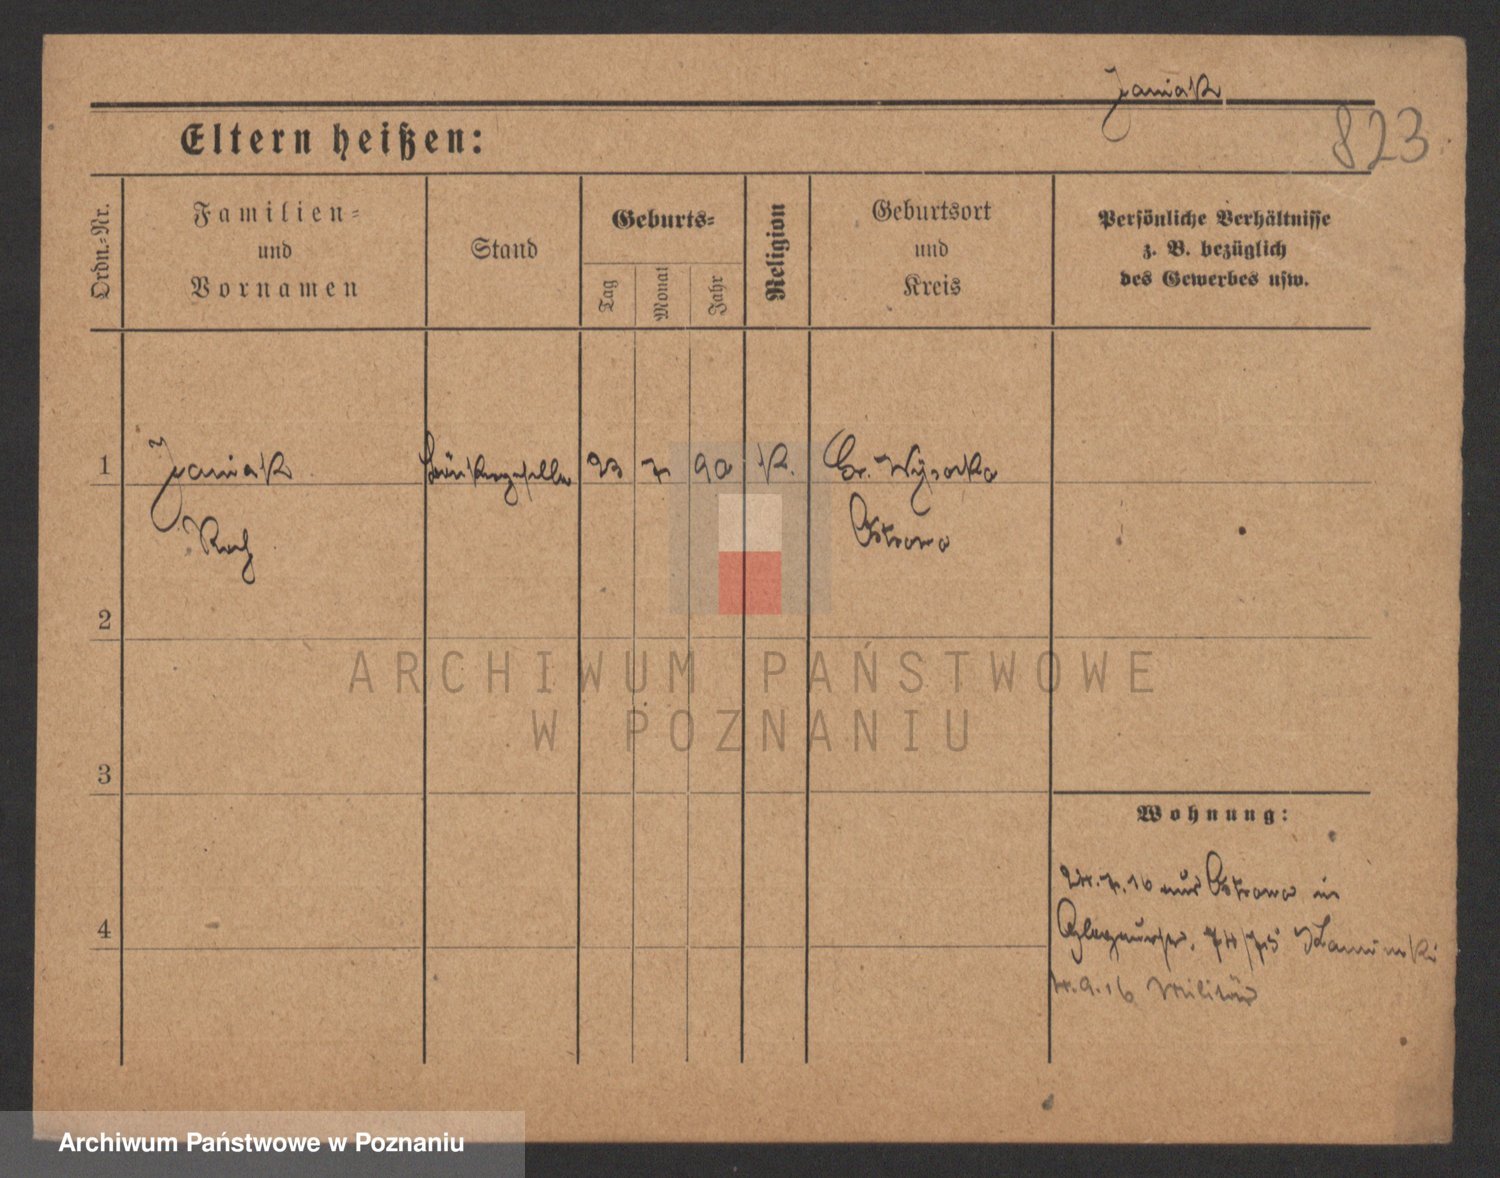 Janiak
823
Eltern heißen:
Ordn.-Nr.
Familien-
und
Vornamen
Stand
Geburts-
Tag
Monat
Jahr
Religion
Geburtsort
und
Kreis
Persönliche Verhältnisse
z. B. bezüglich
des Gewerbes usw.
1
Janiak
23 7 90 K. Gr. Wysocko
Roch
Ostrowo
2
ARCHIWUM PAŃSTWOWE
W POZNANIU
3
Wohnung:
7.16 aus Ostrowo in
4
74/75 Kaminski
9.16 Militär
Archiwum Państwowe w Poznaniu